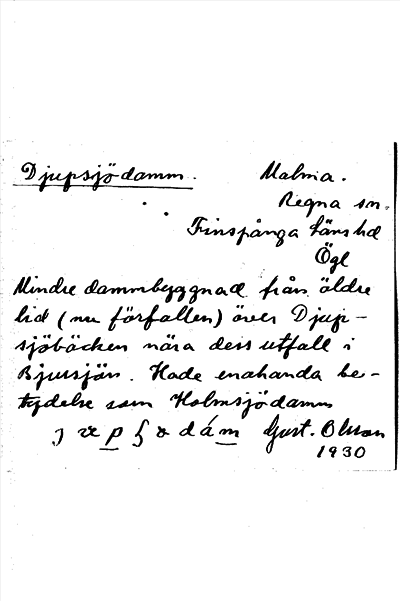 Djupsjödamm. Malma.
Regna sn.
Finspånga länshd
Ögl
Mindre dammbyggnad från äldre
tid (nu förfallen) över Djup-
sjöbäcken nära dess utfall i
Bjursjön. Hade enahanda be-
tydelse som Holmsjödamm
Gust. Olsson
1930